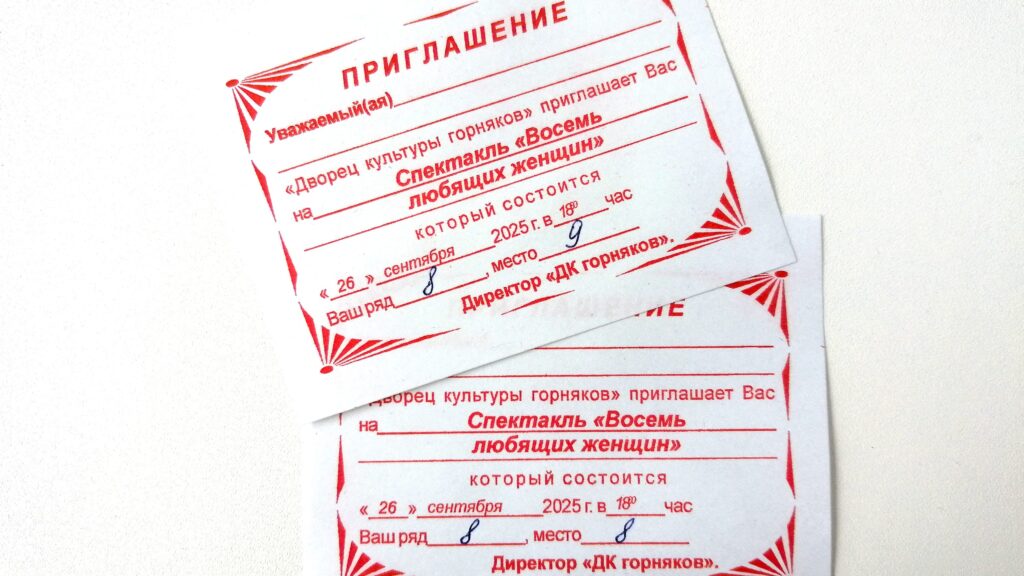 ПРИГЛАШЕНИЕ
Уважаемый(ая)
«Дворец культуры горняков» приглашает Вас
на Спектакль «Восемь
любящих женщин»
который состоится
« 26 » сентября 2025 г. в 18⁰⁰ час
Ваш ряд 8, место 9
Директор «ДК горняков».
ИЕ
Дворец культуры горняков» приглашает Вас
на Спектакль «Восемь
любящих женщин»
который состоится
« 26 » сентября 2025 г. в 18⁰⁰ час
Ваш ряд 8, место 8
Директор «ДК горняков».